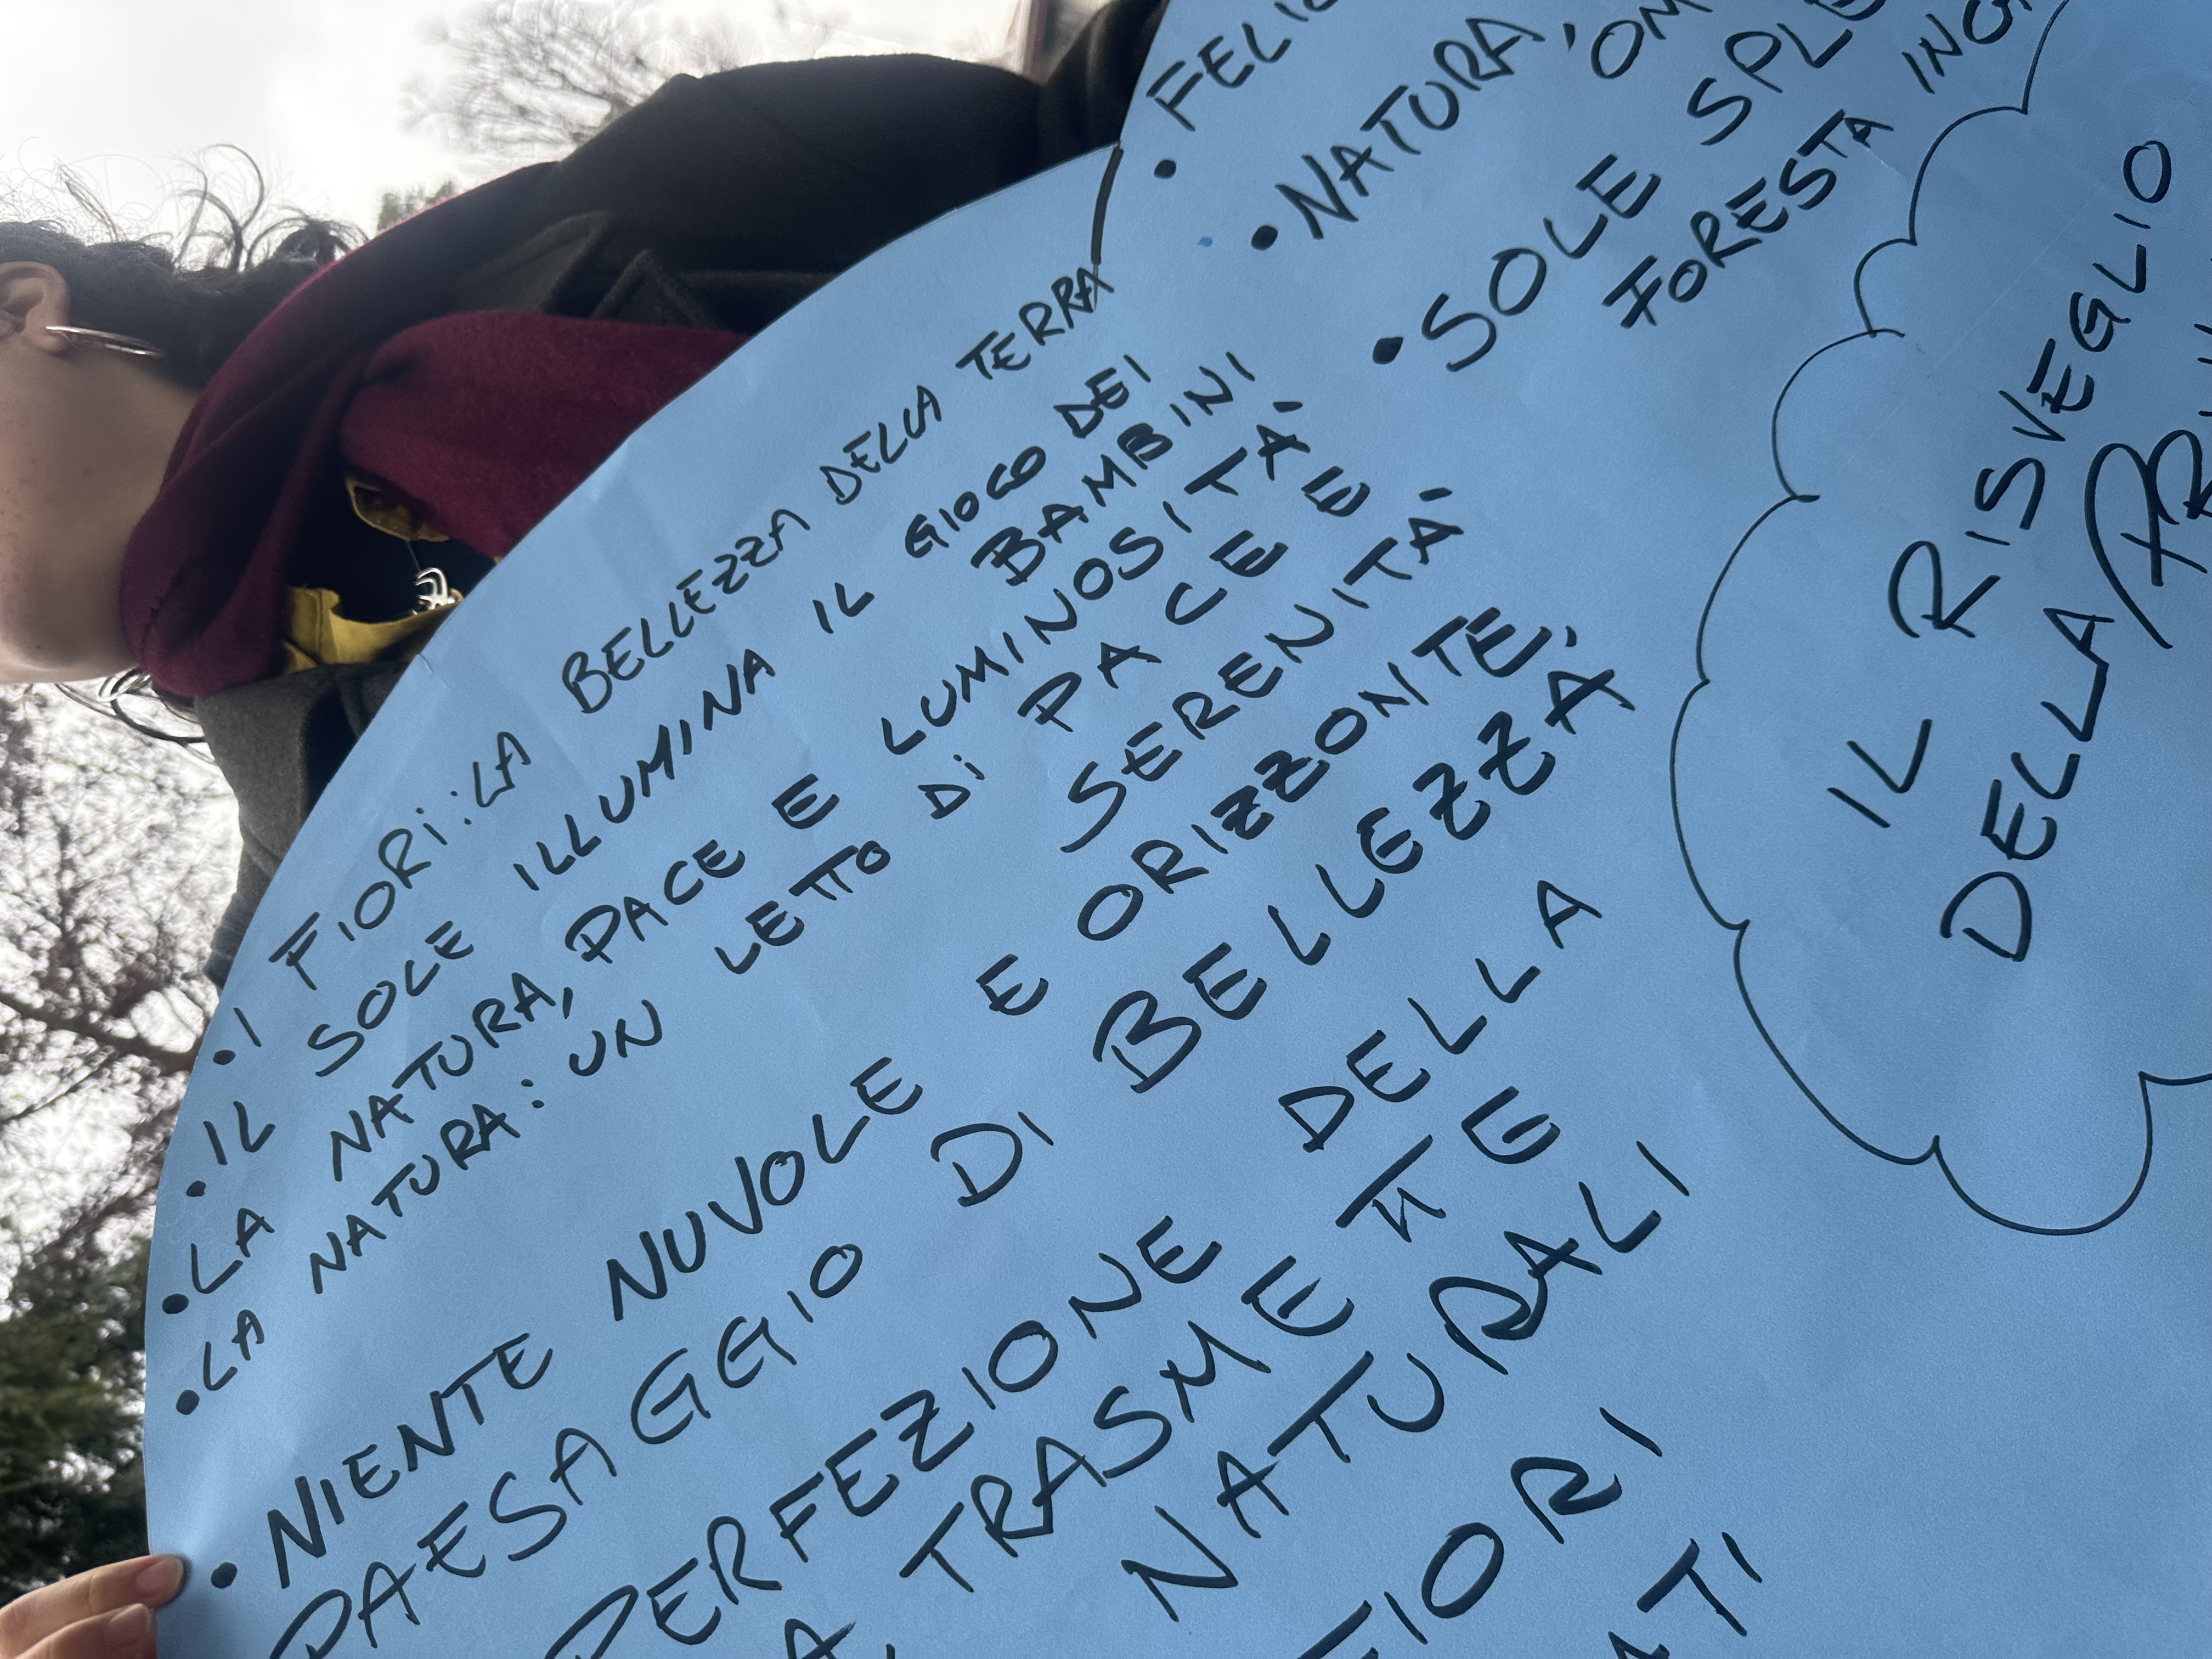 • I FIORI: LA BELLEZZA DELLA TERRA
• IL SOLE ILLUMINA IL GIOCO DEI
BAMBINI
• LA NATURA, PACE E LUMINOSITÁ
• LA NATURA: UN LETTO DI PACE E
SERENITÁ
• NIENTE NUVOLE E ORIZZONTE,
PAESAGGIO DI BELLEZZÁ
PERFEZIONE DELLA
TRASMETTE
NATURALI
FIORI
•
• NATURA,
• SOLE
FORESTA
IL RISVEGLIO
DELLA